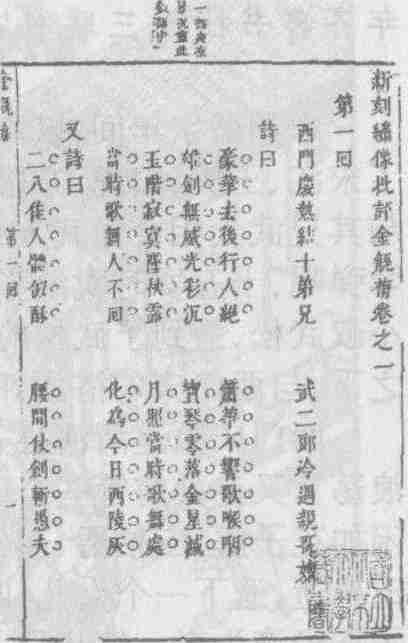 一部炎涼
景况盡此
數語中
新刻繡像批評金瓶梅卷之一
第一回
西門慶熱結十弟兄　武二郎冷遇親哥嫂
詩曰
豪華去後行人絕　簫箏不響歌喉咽
雄劍無威光彩沉　寶琴零落金星滅
玉階寂寞墜秋露　月照當時歌舞處
當時歌舞人不回　化為今日西陵灰
又詩曰
二八佳人體似酥　腰間仗劍斬愚夫
金瓶梅　第一回　一